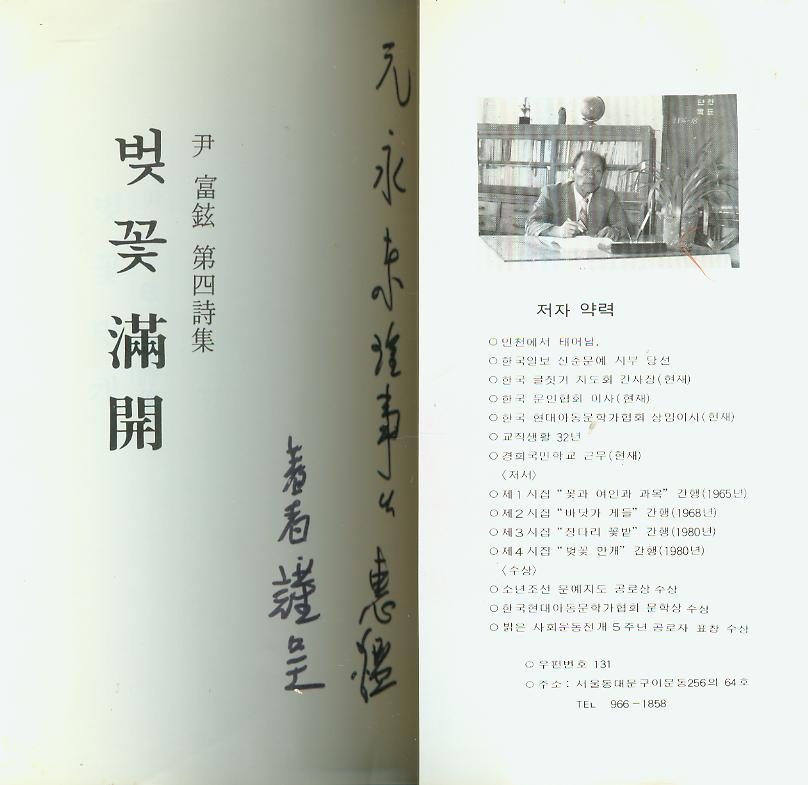 元永東理事님 惠鑑
著者 謹呈
尹 富鉉 第四詩集
벚꽃滿開
저자 약력
○ 인천에서 태어남.
○ 한국일보 신춘문예 시부 당선
○ 한국 글짓기 지도회 간사장(현재)
○ 한국 문인협회 이사(현재)
○ 한국 현대아동문학가협회 상임이사(현재)
○ 교직생활 32년
○ 경희국민학교 근무(현재)
〈저서〉
○ 제1시집 “꽃과 여인과 과목” 간행(1965년)
○ 제2시집 “바닷가 게들” 간행(1968년)
○ 제3시집 “장다리 꽃밭” 간행(1980년)
○ 제4시집 “벚꽃 만개” 간행(1980년)
〈수상〉
○ 소년조선 문예지도 공로상 수상
○ 한국현대아동문학가협회 문학상 수상
○ 밝은 사회운동전개 5주년 공로자 표창 수상
○ 우편번호 131
○ 주소 : 서울동대문구이문동256의 64호
TEL 966-1858